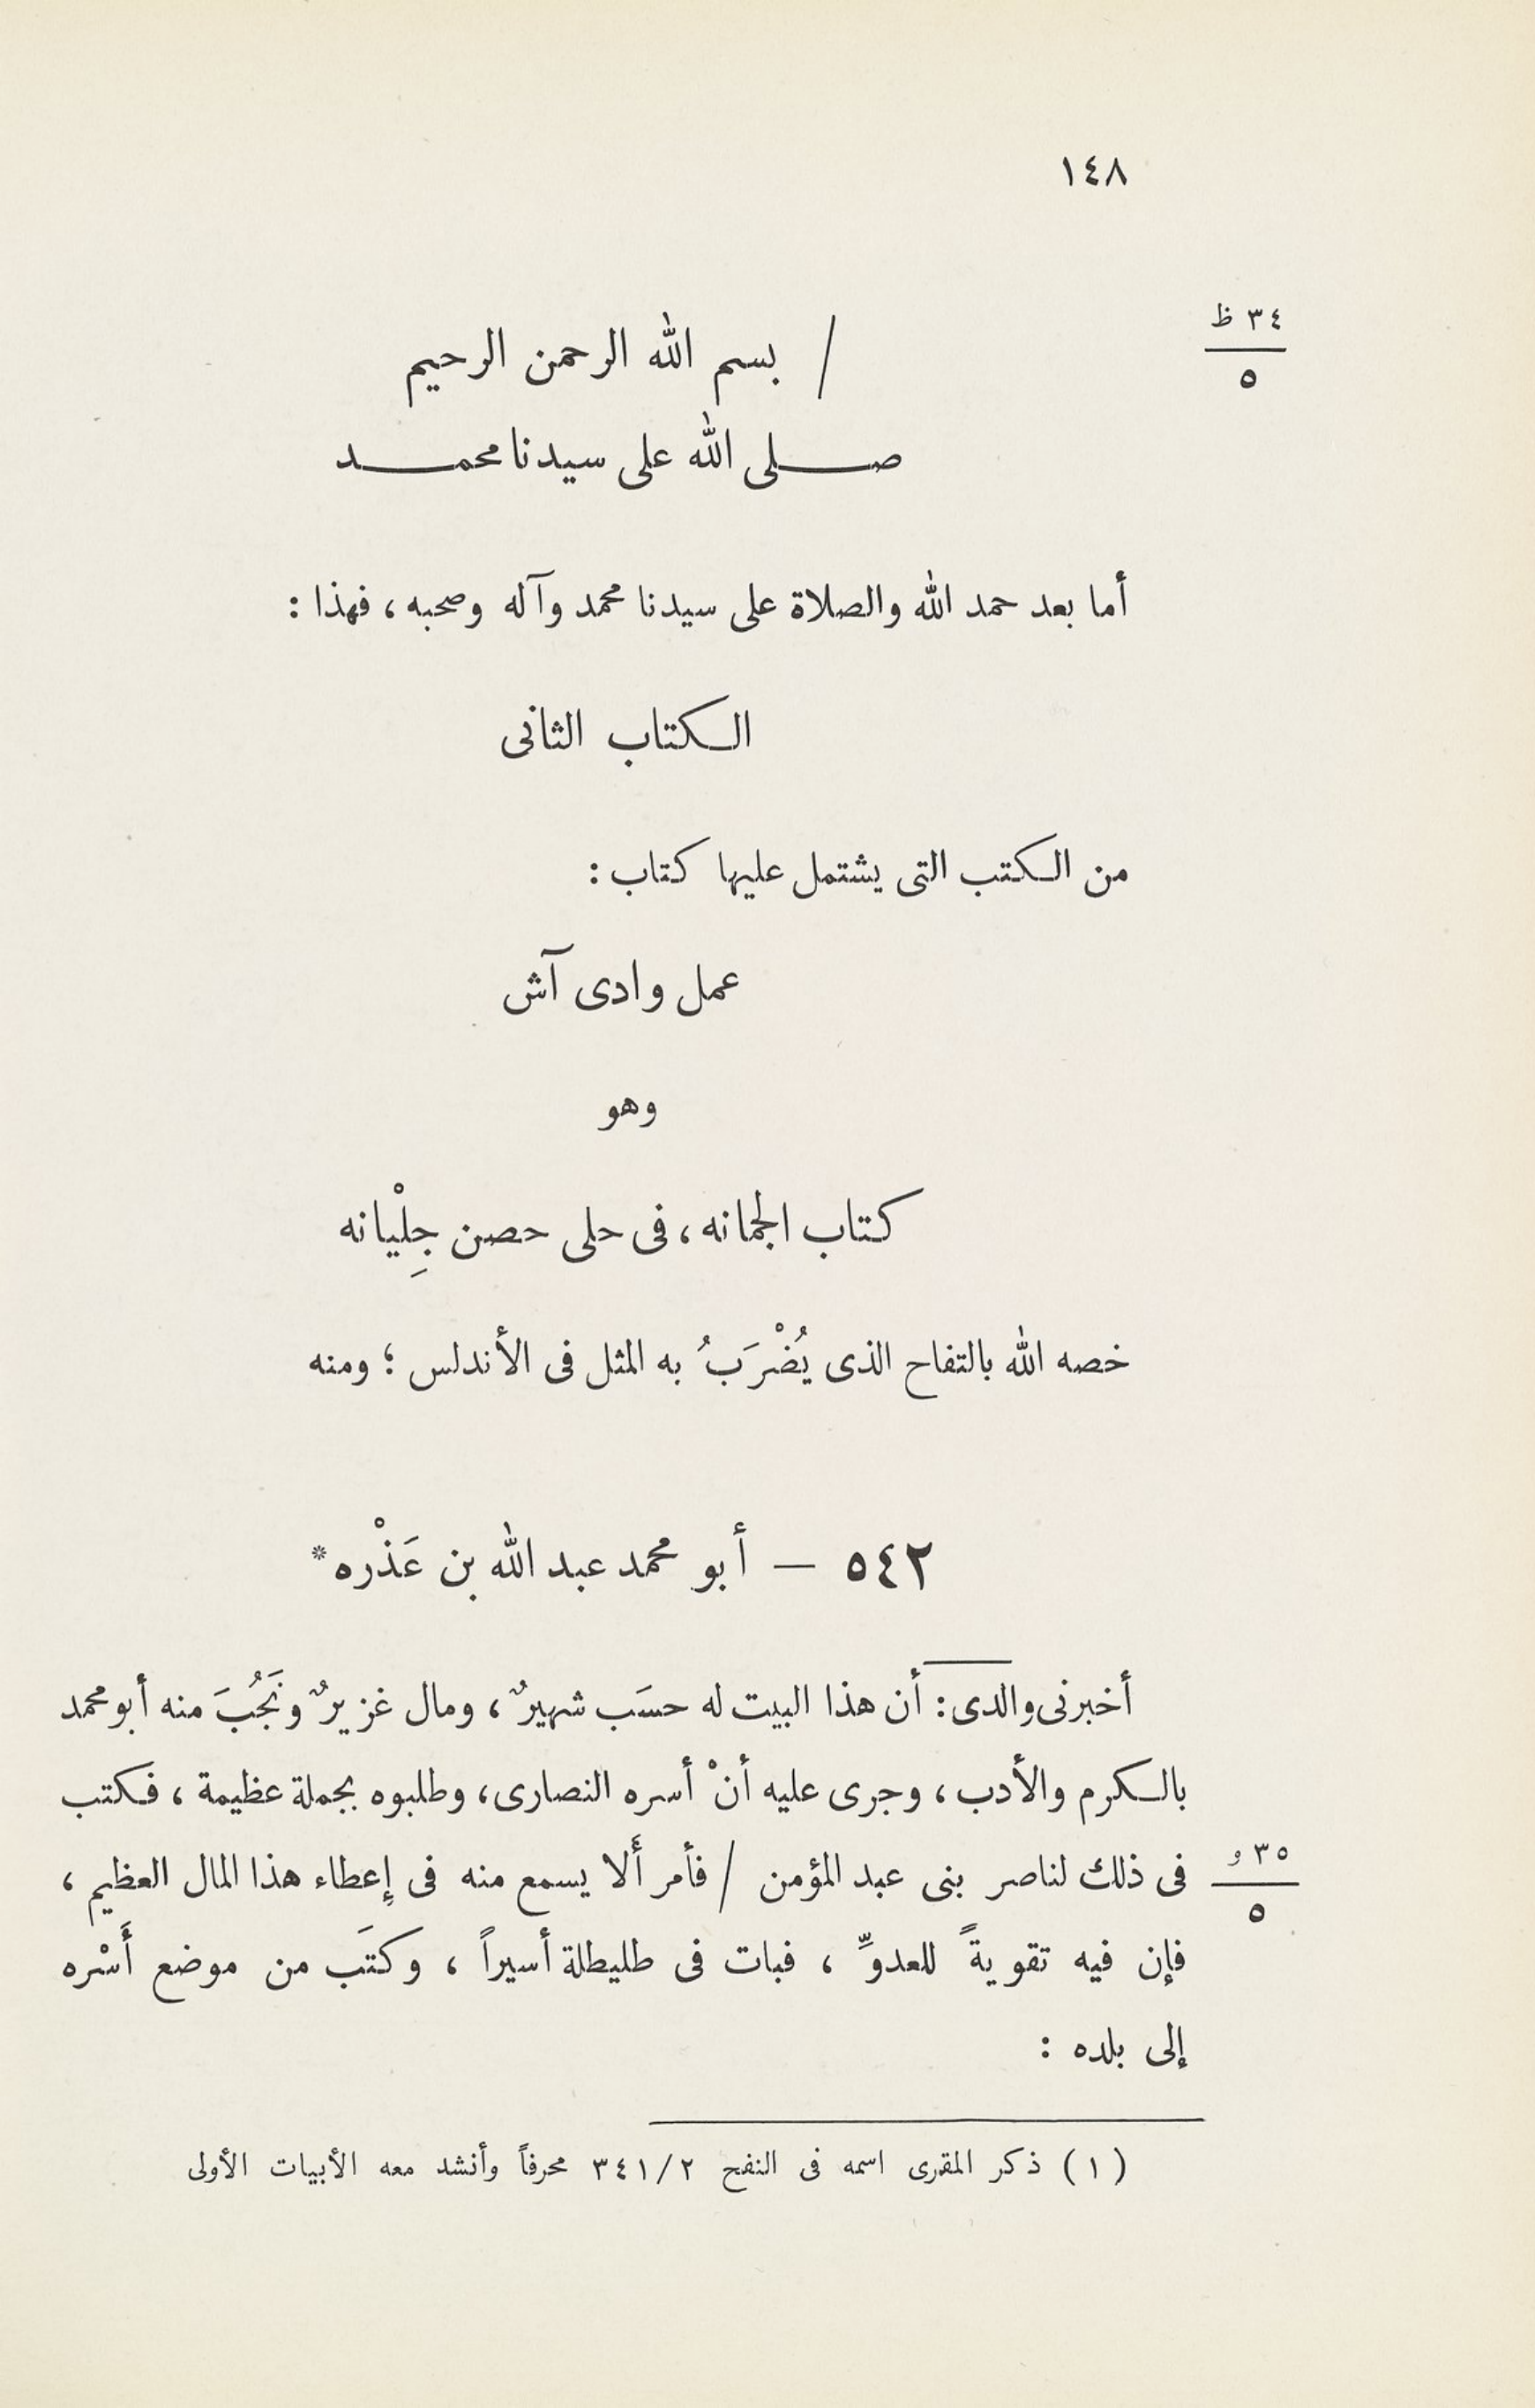 ١٤٨
٣٤ ظ
٥
/ بسم الله الرحمن الرحيم
صلى الله على سيدنا محمد
أما بعد حمد الله والصلاة على سيدنا محمد وآله وصحبه ، فهذا :
الكتاب الثانى
من الكتب التى يشتمل عليها كتاب :
عمل وادى آش
وهو
كتاب الجمانه ، فى حلى حصن جِلْيانه
خصه الله بالتفاح الذى يُضْرَبُ به المثل فى الأندلس ؛ ومنه
٥٤٢ — أبو محمد عبد الله بن عَذْره *
أخبرنى والدى : أن هذا البيت له حسَب شهيرٌ ، ومال غزيرٌ ونَجُبَ منه أبو محمد
بالكرم والأدب ، وجرى عليه أنْ أسره النصارى ، وطلبوه بجملة عظيمة ، فكتب
فى ذلك لناصر بنى عبد المؤمن / فأمر أَلا يسمع منه فى إِعطاء هذا المال العظيم ،
٣٥ و
٥
فإن فيه تقويةً للعدوِّ ، فبات فى طليطلة أسيراً ، وكتَب من موضع أَسْره
إلى بلده :
( ١ ) ذكر المقرى اسمه فى النفح ٣٤١/٢ محرفاً وأنشد معه الأبيات الأولى